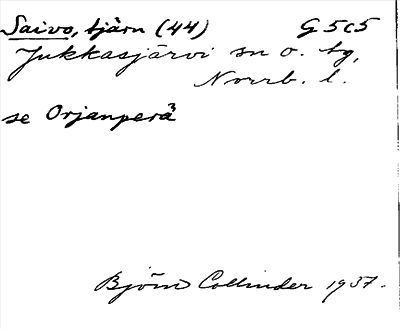 Saivo, tjärn (44) G5c5
Jukkasjärvi sn o. tg,
Norrb. l.
se Orjanperä
Björn Collinder 1937.